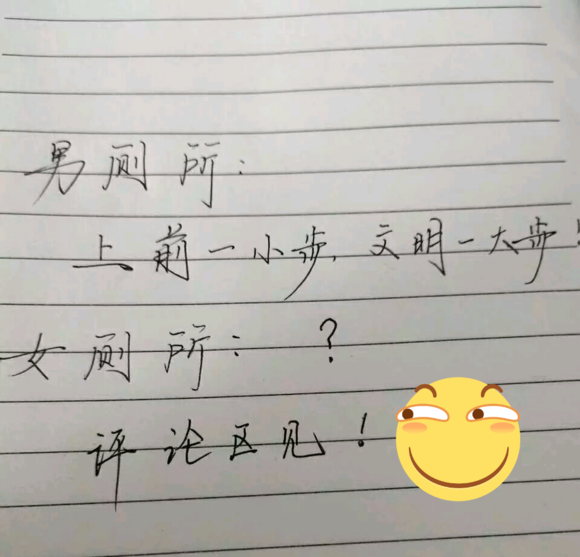 男厕所：
上前一小步，文明一大步！
女厕所：？
评论区见！